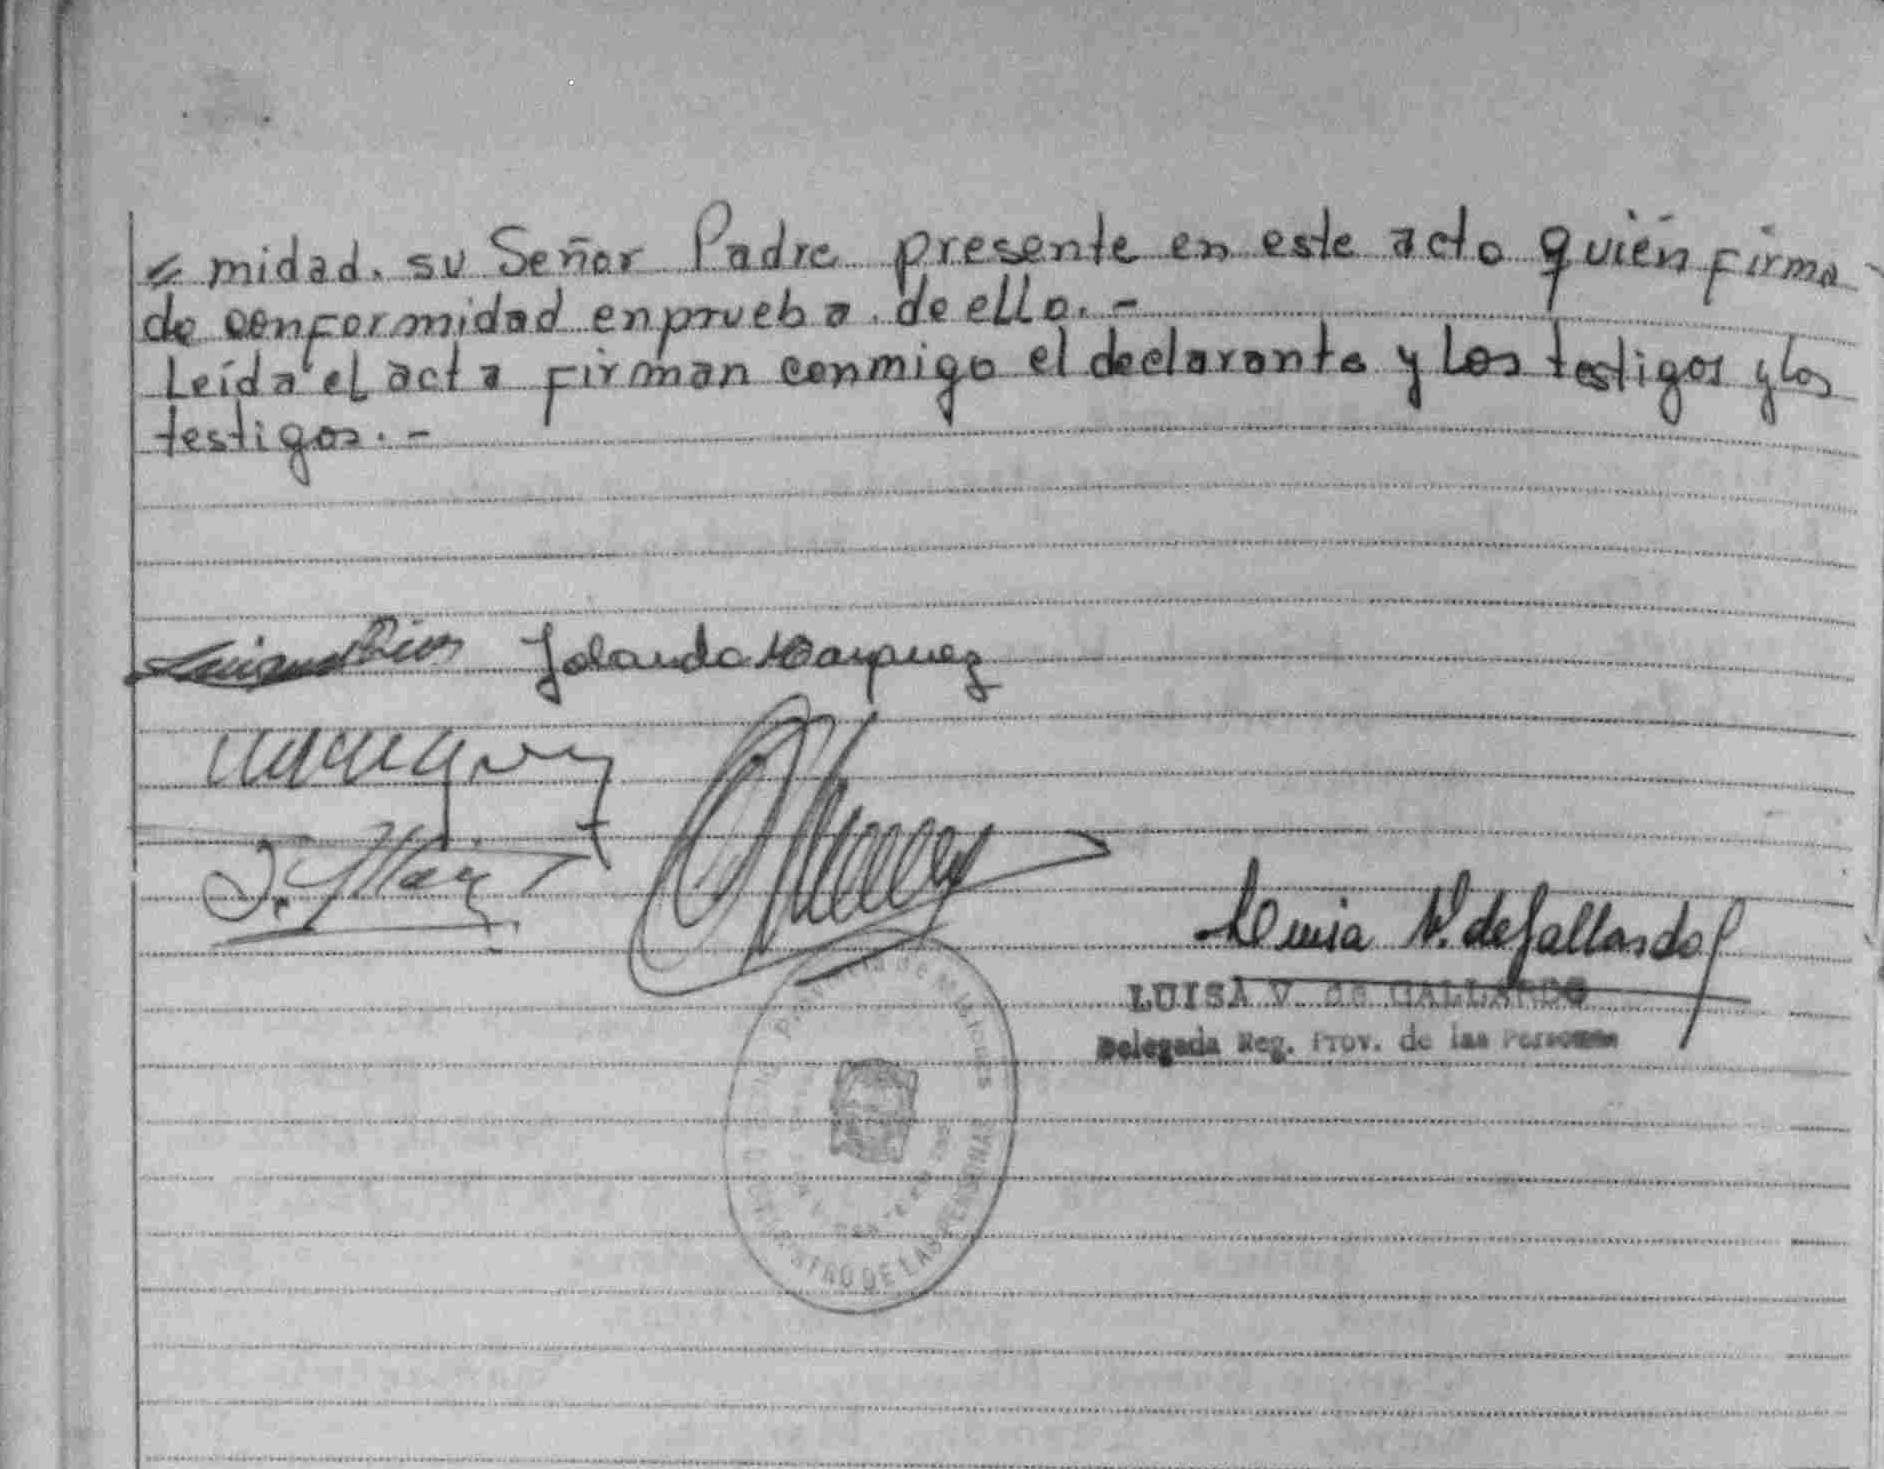 midad. su Señor Padre presente en este acto quién firma
de conformidad en prueba de ello. -
Leída el acta firman conmigo el declarante y los testigos y los
testigos. -
Rios Jolanda Marquez
Luisa V. de Gallardo
LUISA V. de GALLARDO
Delegada Reg. Prov. de las Personas
de Misiones
REGISTRO DE LAS PERSONAS